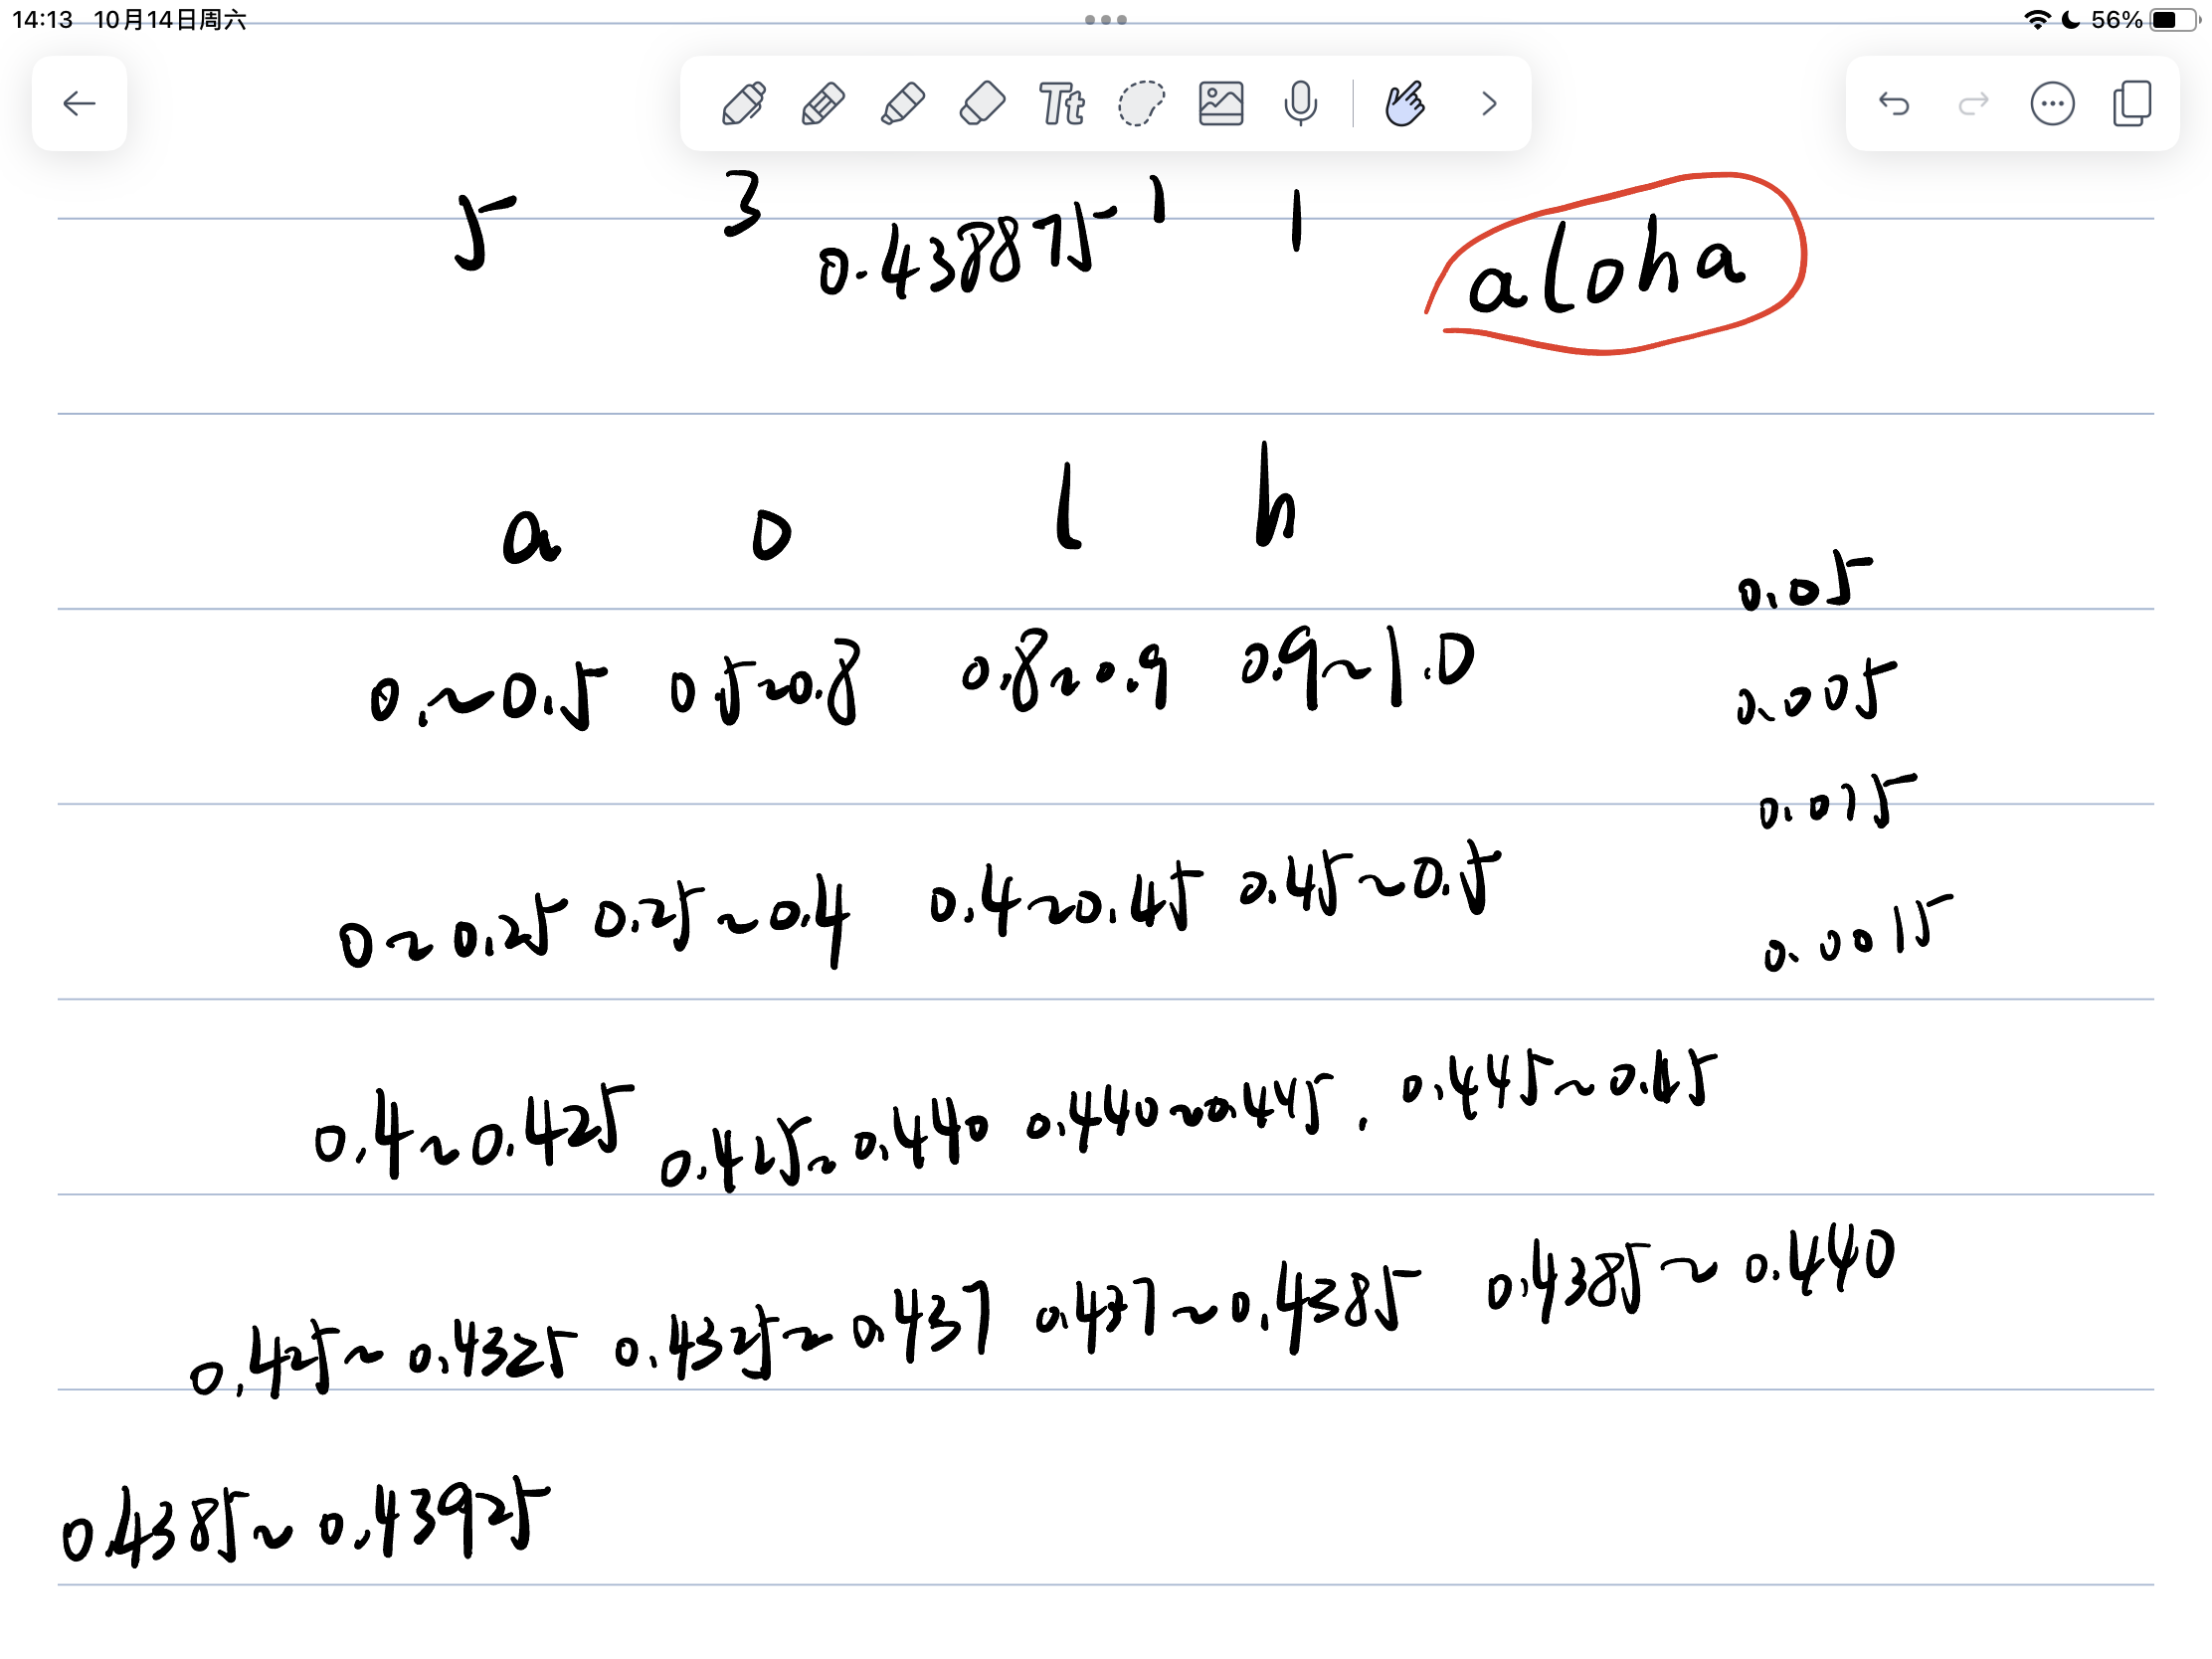 14:13 10月14日周六 56%
Tt
5 3 0.438875 1 1 aloha
a o l h
0.05
0.~0.5 0.5~0.8 0.8~0.9 0.9~1.0
0.005
0.015
0~0.25 0.25~0.4 0.4~0.45 0.45~0.5
0.0015
0.4~0.425 0.425~0.440 0.440~0.445. 0.445~0.45
0.425~0.4325 0.4325~0.437 0.437~0.4385 0.4385~0.440
0.4385~0.43925